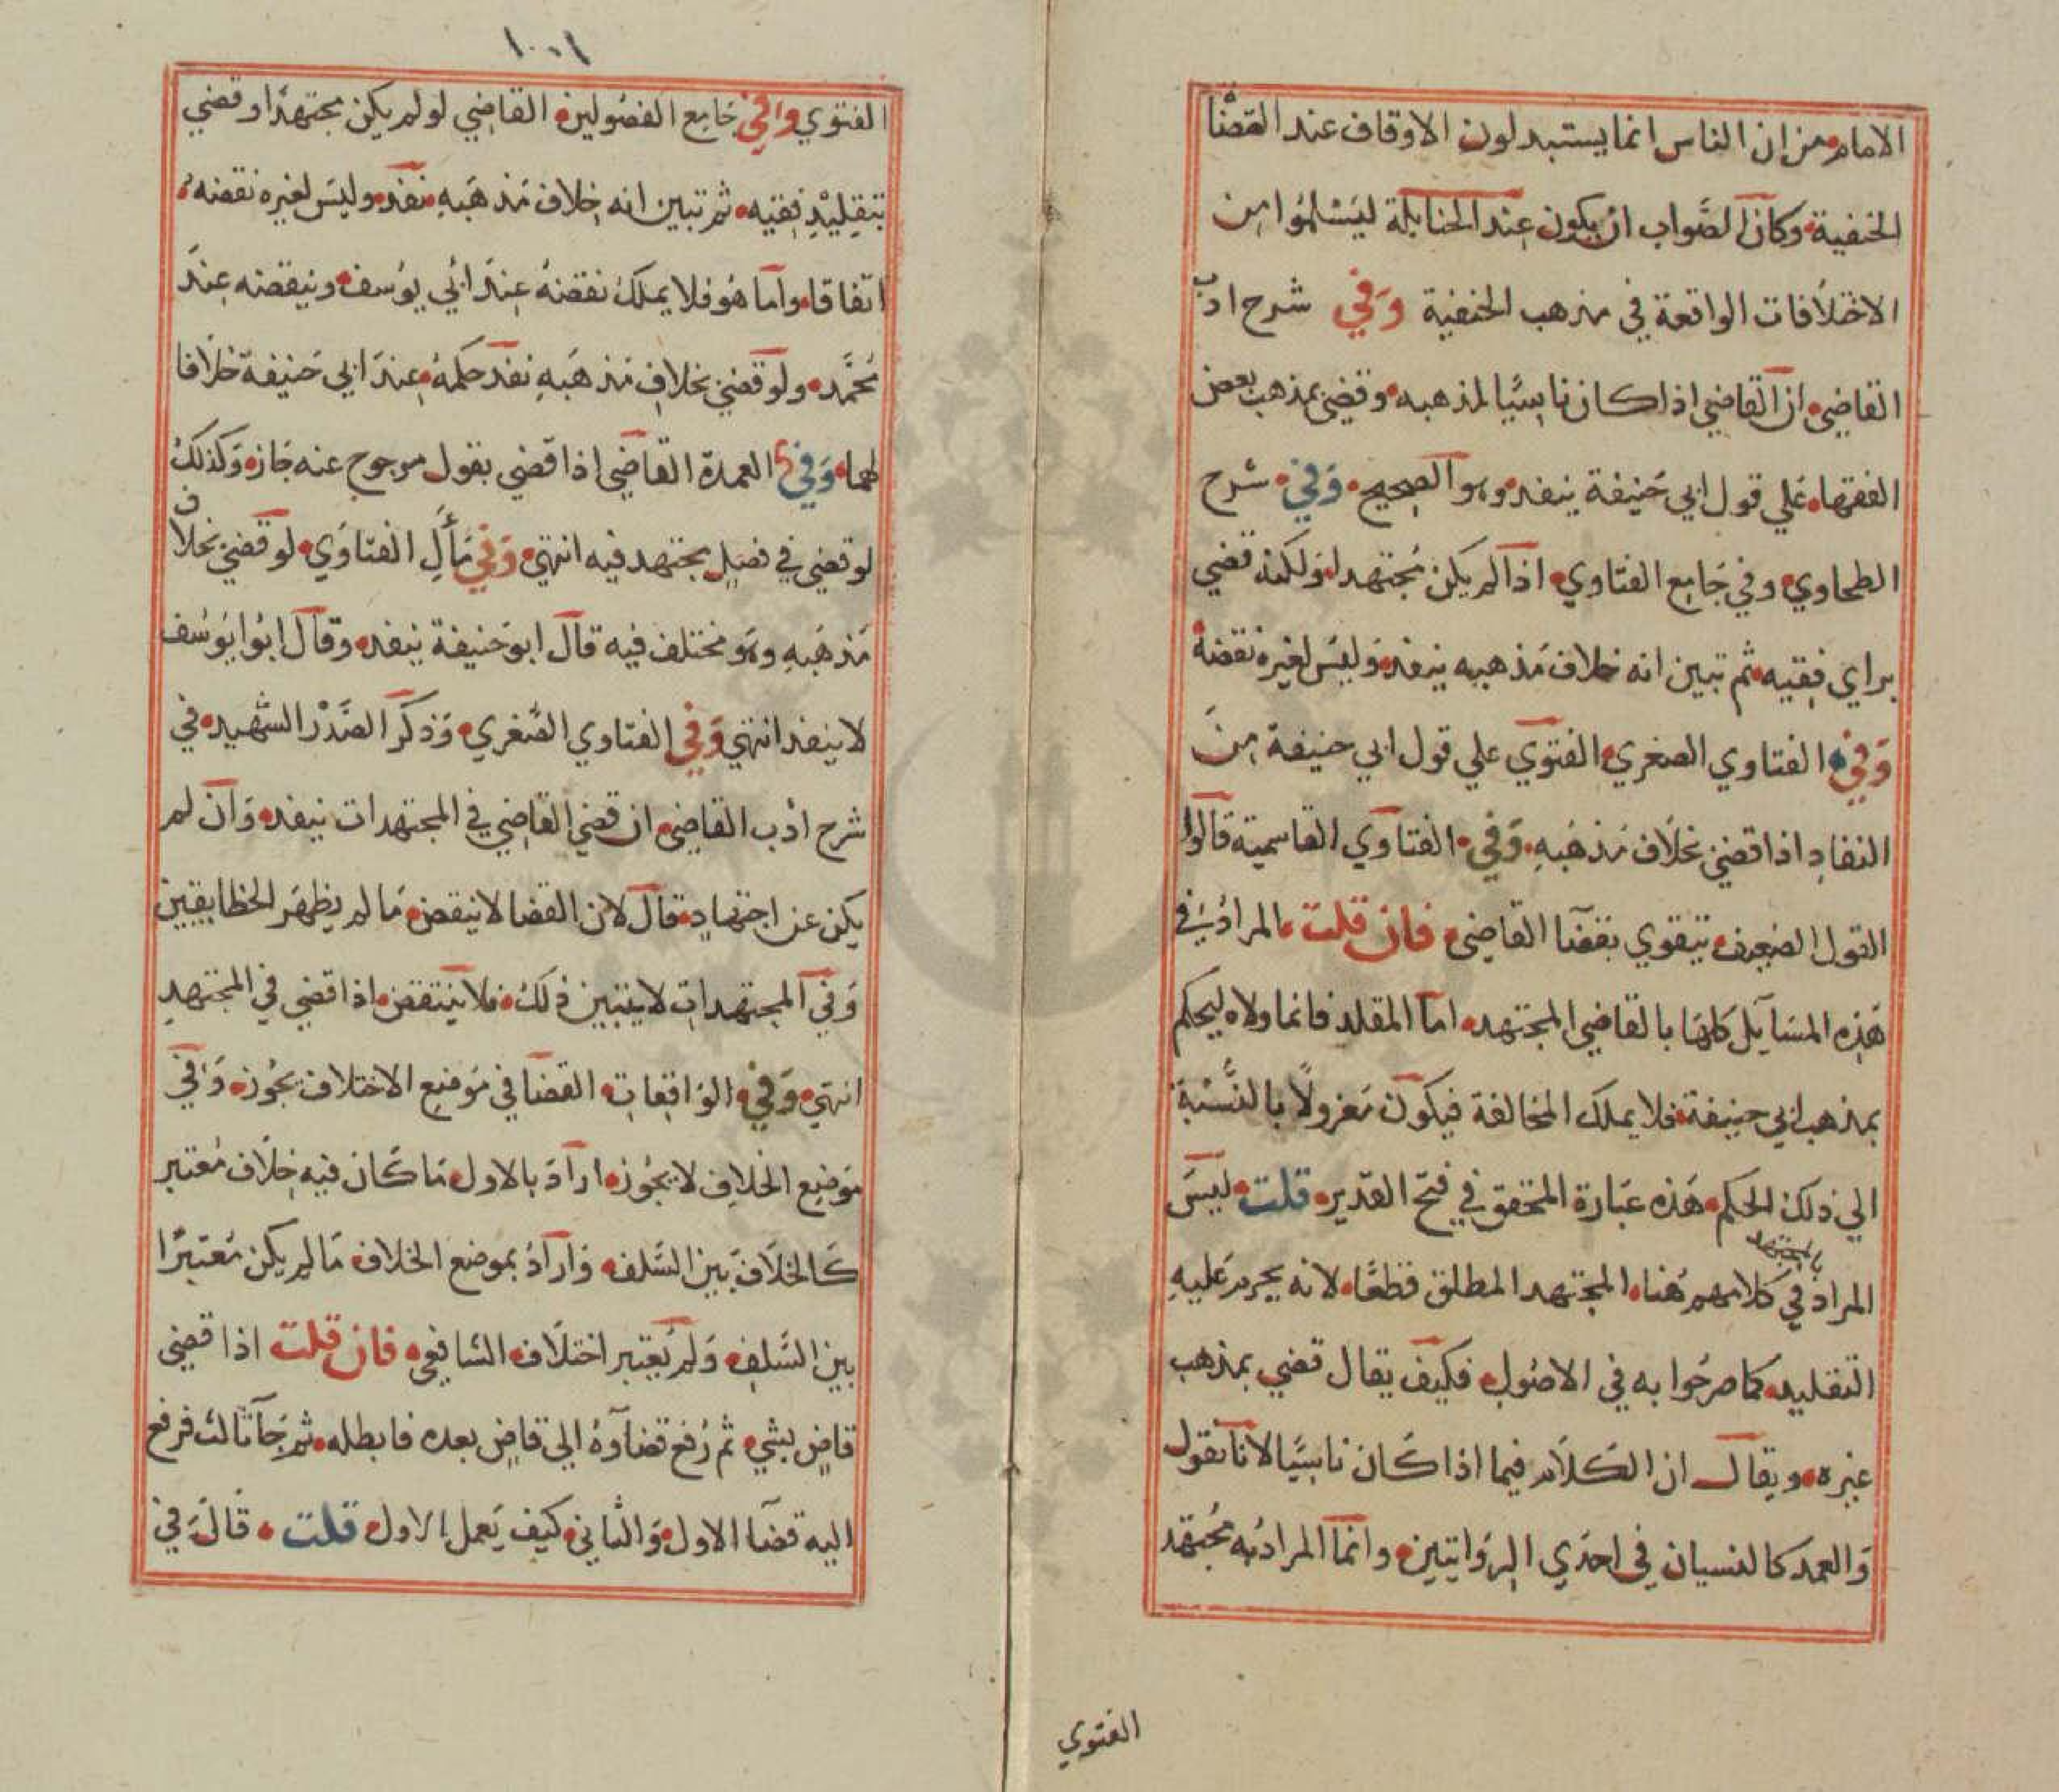 الامام من ان الناس انما يستبدلون الاوقاف عند القضا
الحنفية وكان الصواب ان يكون عند الحنابلة ليسلموا من
الاختلافات الواقعة في مذهب الحنفية وفي شرح ادب
القاضي ان القاضي اذا كان ناسيا لمذهبه وقضى بمذهب بعض
الفقها علي قول ابي حنيفة ينفد وهو الصحيح وفي شرح
الطحاوي وفي جامع الفتاوي اذا لم يكن مجتهدا ولكنه قضي
براي فقيه ثم تبين انه خلاف مذهبه ينفد وليس لغيره نقضه
وفي الفتاوي الصغري الفتوي علي قول ابي حنيفة من
النفاد اذا قضي بخلاف مذهبه وفي الفتاوي القاسمية قالوا
القول الضعيف يتقوي بقضا القاضي فان قلت المراد في
هذه المسايل كلها بالقاضي المجتهد اما المقلد فانما ولاه ليحكم
بمذهب ابي حنيفة فلا يملك المخالفة فيكون معزولا بالنسبة
الي ذلك الحكم هذه عبارة المحقق في فتح القدير قلت ليس
بالمجتهد
المراد في كلامهم هنا المجتهد المطلق قطعا لانه يحرم عليه
التقليد كما صرحوا به في الاصول فكيف يقال قضي بمذهب
غيره ويقال ان الكلام فيما اذا كان ناسيا لانا نقول
والعمد كالنسيان في احدي الروايتين وانما المراد به مجتهد
الفتوي
١٠٠١
الفتوي وفي جامع الفصولين القاضي لو لم يكن مجتهدا وقضي
بتقليد فقيه ثم تبين انه خلاف مذهبه نفد وليس لغيره نقضه
اتفاقا واما هو فلا يملك نقضه عند ابي يوسف وينقضه عند
محمد ولو قضي بخلاف مذهبه نفد حكمه عند ابي حنيفة خلافا
لهما وفي العمدة القاضي اذا قضي بقول مرجوح عنه جاز وكذلك
لو قضي في فصل مجتهد فيه انتهي وفي مأل الفتاوي لو قضي بخلاف
مذهبه وهو مختلف فيه قال ابو حنيفة ينفد وقال ابوا يوسف
لا ينفد انتهي وفي الفتاوي الصغري وذكر الصدر الشهيد في
شرح أدب القاضي ان قضي القاضي في المجتهدات ينفد وان لم
يكن عن اجتهاد قال لان القضا لا ينقض ما لم يظهر الخطا بيقين
وفي المجتهدات لا يتبين ذلك فلا ينتقض اذا قضي في المجتهد
انتهي وفي الواقعات القضا في موضع الاختلاف يجوز وفي
موضع الخلاف لا يجوز اراد بالاول ما كان فيه خلاف معتبر
كالخلاف بين السلف واراد بموضع الخلاف ما لم يكن معتبرا
بين السلف ولم يعتبر اختلاف الشافعي فان قلت اذا قضي
قاض بشي ثم رفع قضاوه الي قاض بعده فابطله ثم جا ثالث فرفع
اليه قضا الاول والثاني كيف يعمل الاول قلت قال في